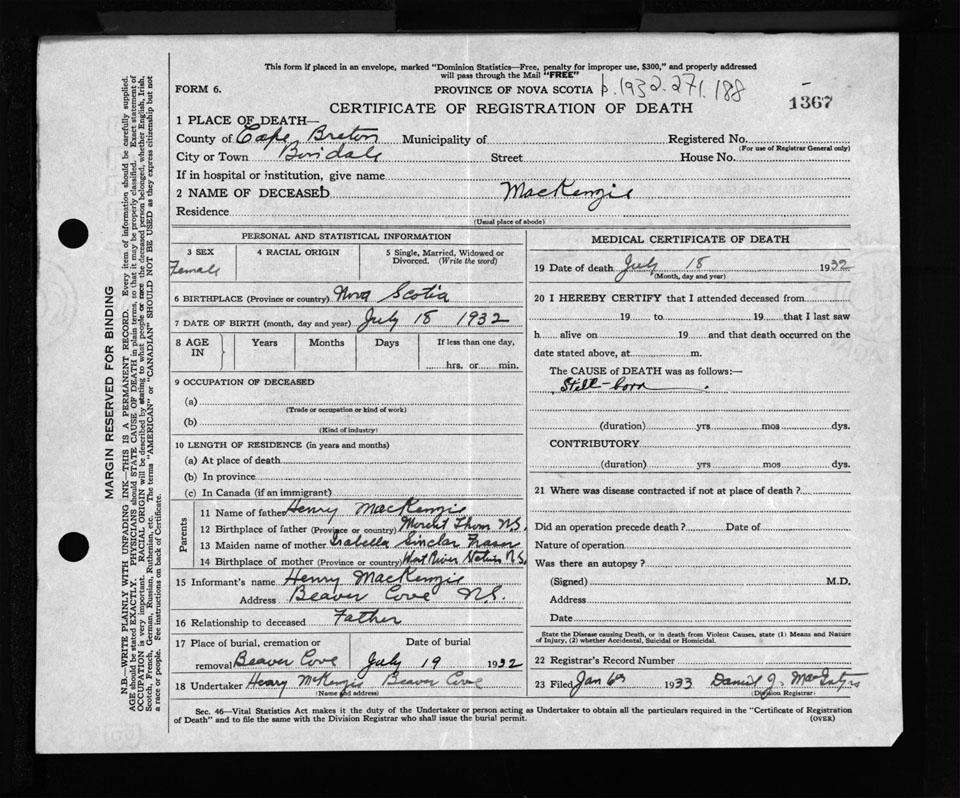 This form if placed in an envelope, marked "Dominion Statistics—Free, penalty for improper use, $300," and properly addressed
will pass through the Mail "FREE"
FORM 6. PROVINCE OF NOVA SCOTIA p.1932.271.188
CERTIFICATE OF REGISTRATION OF DEATH 1367
1 PLACE OF DEATH—
County of Cape Breton Municipality of Registered No.
(For use of Registrar General only)
City or Town Street House No.
If in hospital or institution, give name
2 NAME OF DECEASED MacKenzie
Residence
(Usual place of abode)
PERSONAL AND STATISTICAL INFORMATION
3 SEX 4 RACIAL ORIGIN 5 Single, Married, Widowed or
Divorced. (Write the word)
Female
6 BIRTHPLACE (Province or country) Nova Scotia
7 DATE OF BIRTH (month, day and year) July 18 1932
8 AGE IN Years Months Days If less than one day,
hrs. or min.
9 OCCUPATION OF DECEASED
(a)
(Trade or occupation or kind of work)
(b)
(Kind of industry)
10 LENGTH OF RESIDENCE (in years and months)
(a) At place of death
(b) In province
(c) In Canada (if an immigrant)
Parents
11 Name of father Henry MacKenzie
12 Birthplace of father (Province or country) Mount Thom N.S.
13 Maiden name of mother Isabella Sinclar Fraser
14 Birthplace of mother (Province or country) West River Station N.S.
15 Informant's name Henry MacKenzie
Address Beaver Cove N.S.
16 Relationship to deceased Father
17 Place of burial, cremation or Date of burial
removal Beaver Cove July 19 1932
18 Undertaker Henry McKenzie Beaver Cove
(Name and address)
MEDICAL CERTIFICATE OF DEATH
19 Date of death July 18 1932
(Month, day and year)
20 I HEREBY CERTIFY that I attended deceased from
19 to 19 that I last saw
h alive on 19 and that death occurred on the
date stated above, at m.
The CAUSE of DEATH was as follows:—
Still-born
(duration) yrs mos dys.
CONTRIBUTORY
(duration) yrs mos dys.
21 Where was disease contracted if not at place of death?
Did an operation precede death? Date of
Nature of operation
Was there an autopsy?
(Signed) M.D.
Address
Date
State the Disease causing Death, or in death from Violent Causes, state (1) Means and Nature
of Injury, (2) whether Accidental, Suicidal or Homicidal.
22 Registrar's Record Number
23 Filed Jan 6th 1933 Daniel J.
(Division Registrar)
Sec. 46—Vital Statistics Act makes it the duty of the Undertaker or person acting as Undertaker to obtain all the particulars required in the "Certificate of Registration
of Death" and to file the same with the Division Registrar who shall issue the burial permit. (OVER)
MARGIN RESERVED FOR BINDING
N.B.—WRITE PLAINLY WITH UNFADING INK—THIS IS A PERMANENT RECORD. Every item of information should be carefully supplied.
AGE should be stated EXACTLY. PHYSICIANS should STATE CAUSE OF DEATH in plain terms, so that it may be properly classified. Exact statement of
OCCUPATION is very important. RACIAL ORIGIN will be described by stating to what people or race the deceased person belonged, whether English, Irish,
Scotch, French, German, Russian, Ruthenian, etc. The terms "AMERICAN" or "CANADIAN" SHOULD NOT BE USED as they express citizenship but not
a race or people. See instructions on back of Certificate.